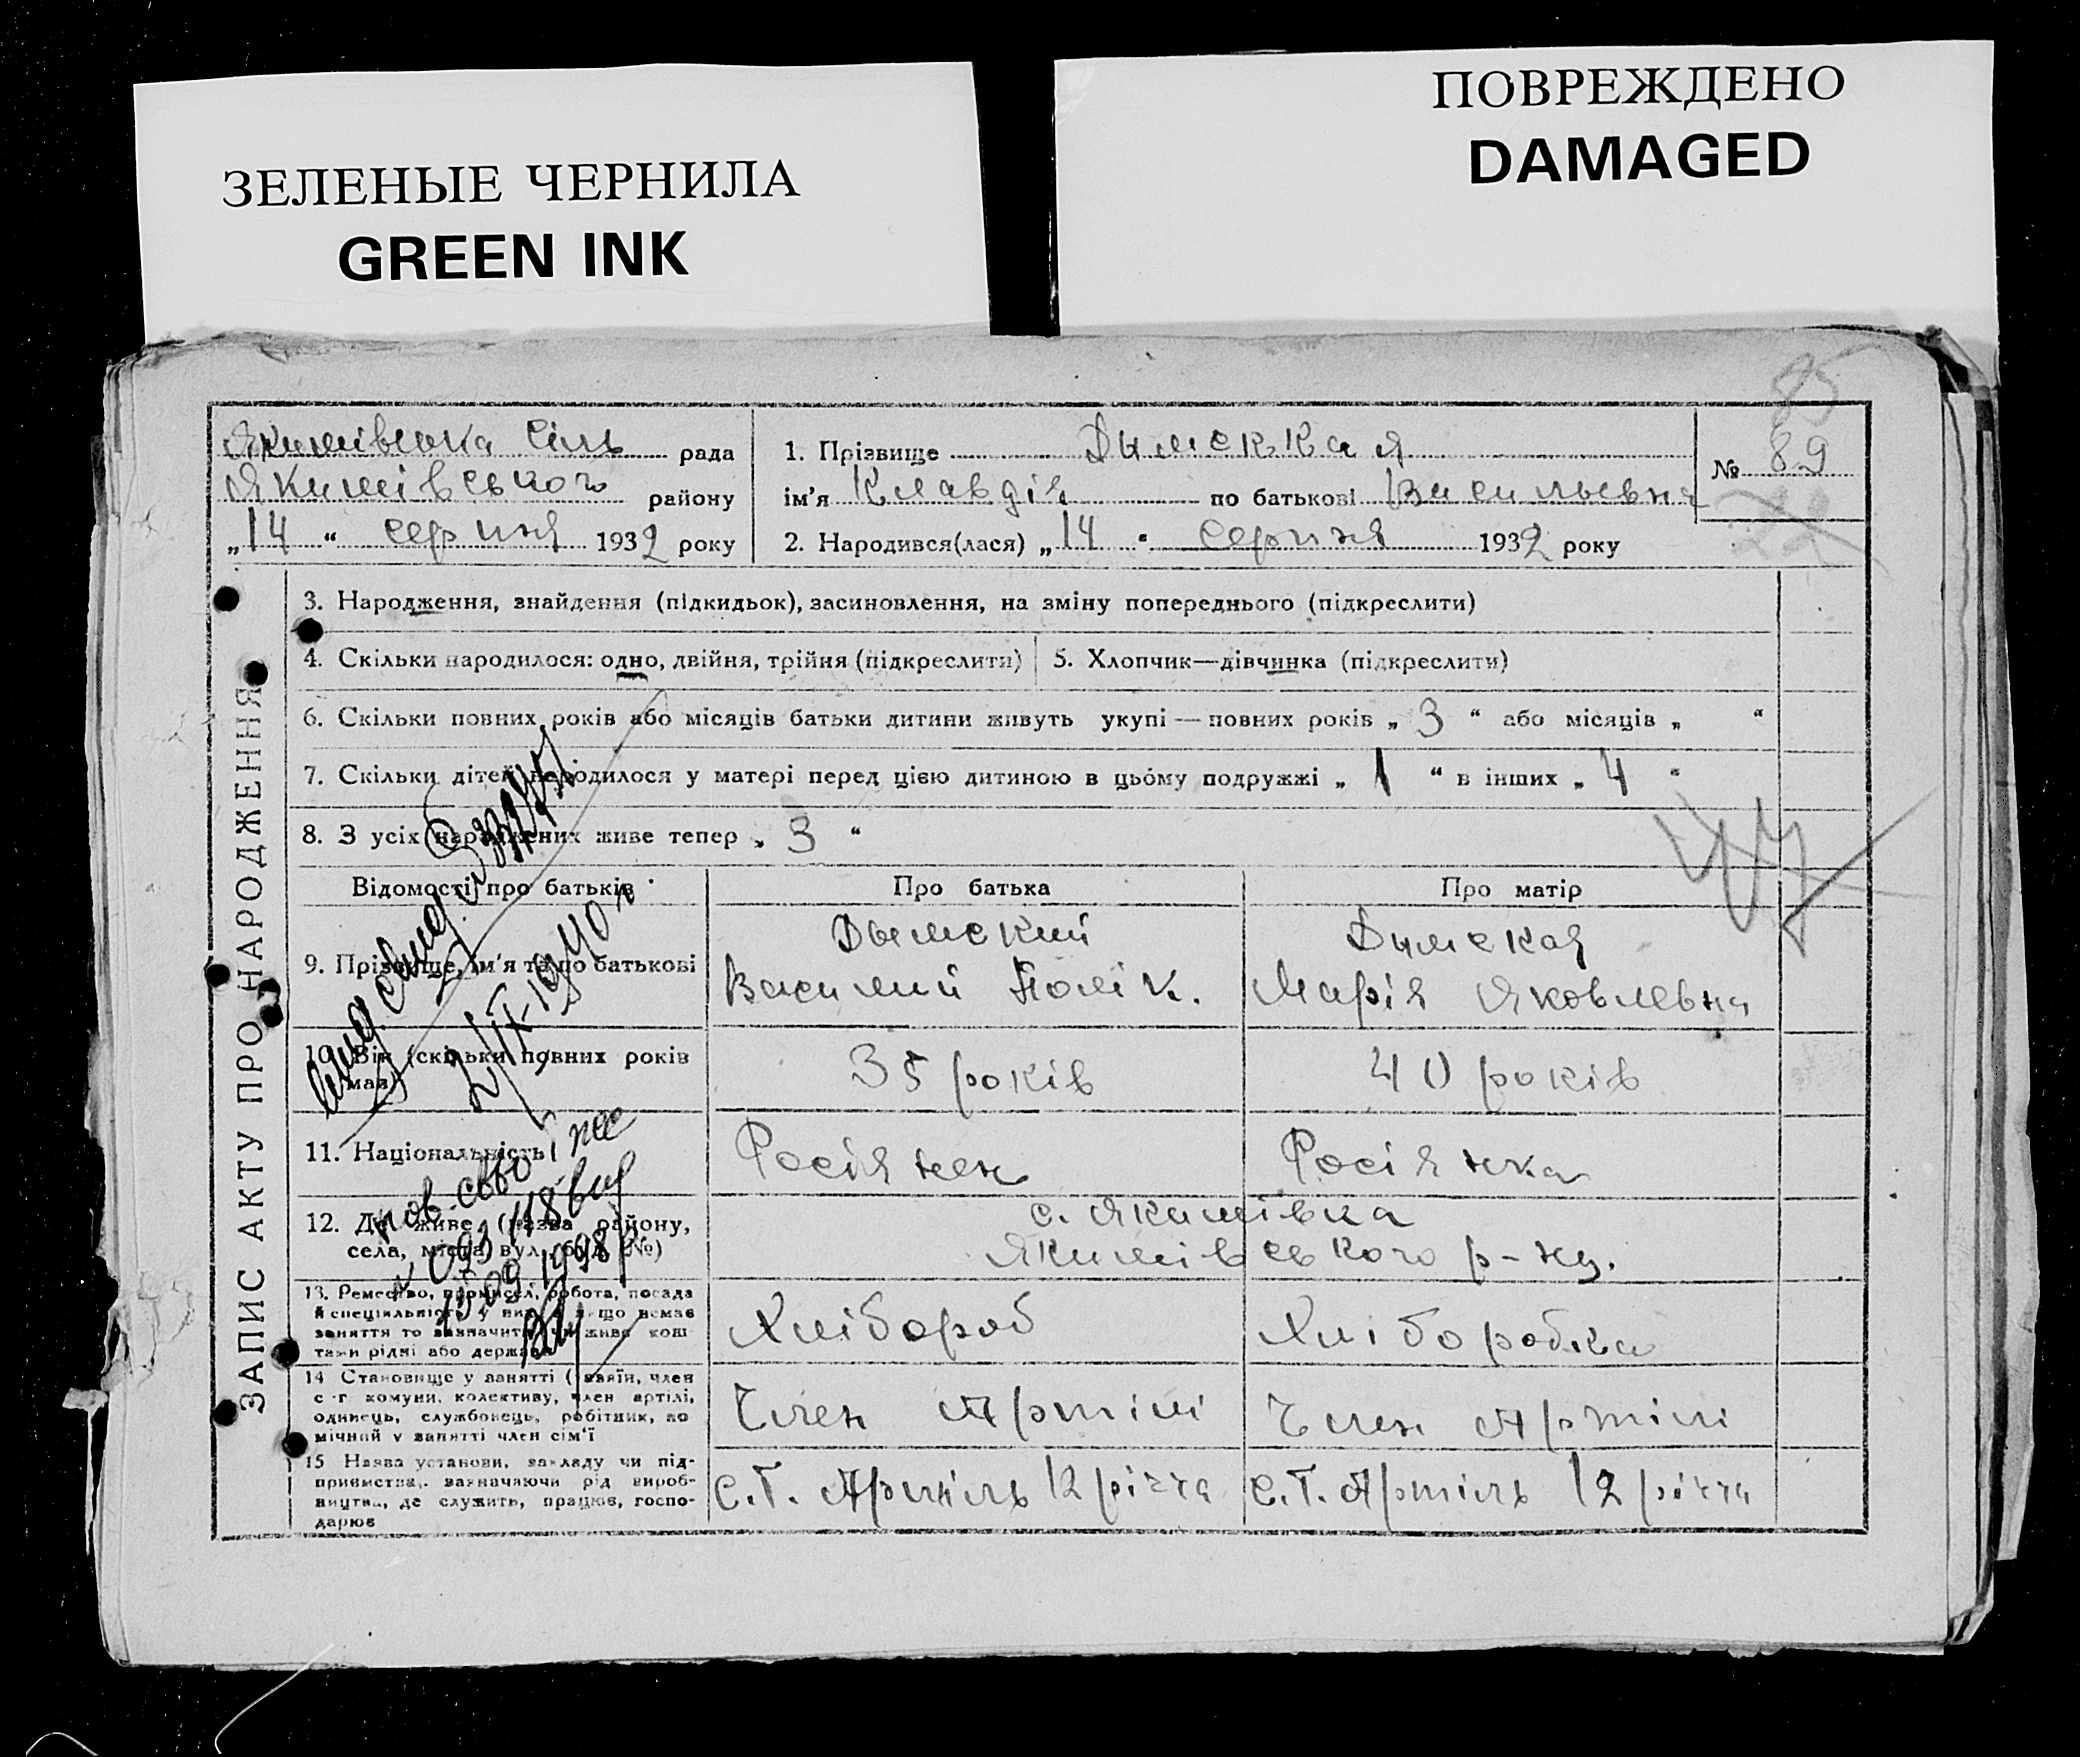 ЗЕЛЕНЫЕ ЧЕРНИЛА
GREEN INK
ПОВРЕЖДЕНО
DAMAGED
85
Якимівська сіль рада
Якимівського району
„14“ серпня 1932 року
1. Прізвище Дымсккая
ім'я Клавдія по батькові Васильевна
2. Народився(лася) „14“ серпня 1932 року
№ 89
ЗАПИС АКТУ ПРО НАРОДЖЕННЯ
3. Народження, знайдення (підкидьок), засиновлення, на зміну попереднього (підкреслити)
4. Скільки народилося: одно, двійня, трійня (підкреслити)
5. Хлопчик—дівчинка (підкреслити)
6. Скільки повних років або місяців батьки дитини живуть укупі — повних років „3“ або місяців „ “
7. Скільки дітей народилося у матері перед цією дитиною в цьому подружжі „1“ в інших „4“
8. З усіх народжених живе тепер „3“
Відомості про батьків
Про батька
Про матір
9. Прізвище, ім'я та по батькові
Дымский
Василий Полік.
Дымская
Марія Яковлевна
10. Вік (скільки повних років має)
35 років
40 років
11. Національність
Росіянен
Росіянка
12. Де живе (назва району,
села, міста, вул., буд. №)
с. Якимівка
Якимівського р-ну.
13. Ремество, промисел, робота, посада
й спеціяльність у них, а якщо немає
заняття то зазначити, чи живе кош
тами рідні або держави
Хлібороб
Хліборобка
14 Становище у занятті (хазяїн, член
с-г комуни, колективу, член артілі,
одинець, службовець, робітник, по
мічний у занятті член сім'ї
Член Артілі
Член Артілі
15 Назва установи, закладу чи під-
приємства, зазначаючи рід вироб-
ництва, де служить, працює, госпо-
дарює
с.г. Артіль 12 річчя
с.г. Артіль 12 річчя
2/IX-1940 г
пов. св-во
15.09.1998р